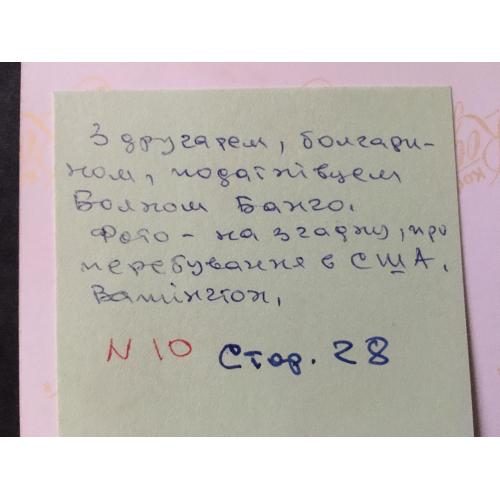 З другарем, болгари-
ном, податківцем
Бояном Банго.
Фото - на згадку, про
перебування в США.
Вашінгтон,
N 10 Стор. 28